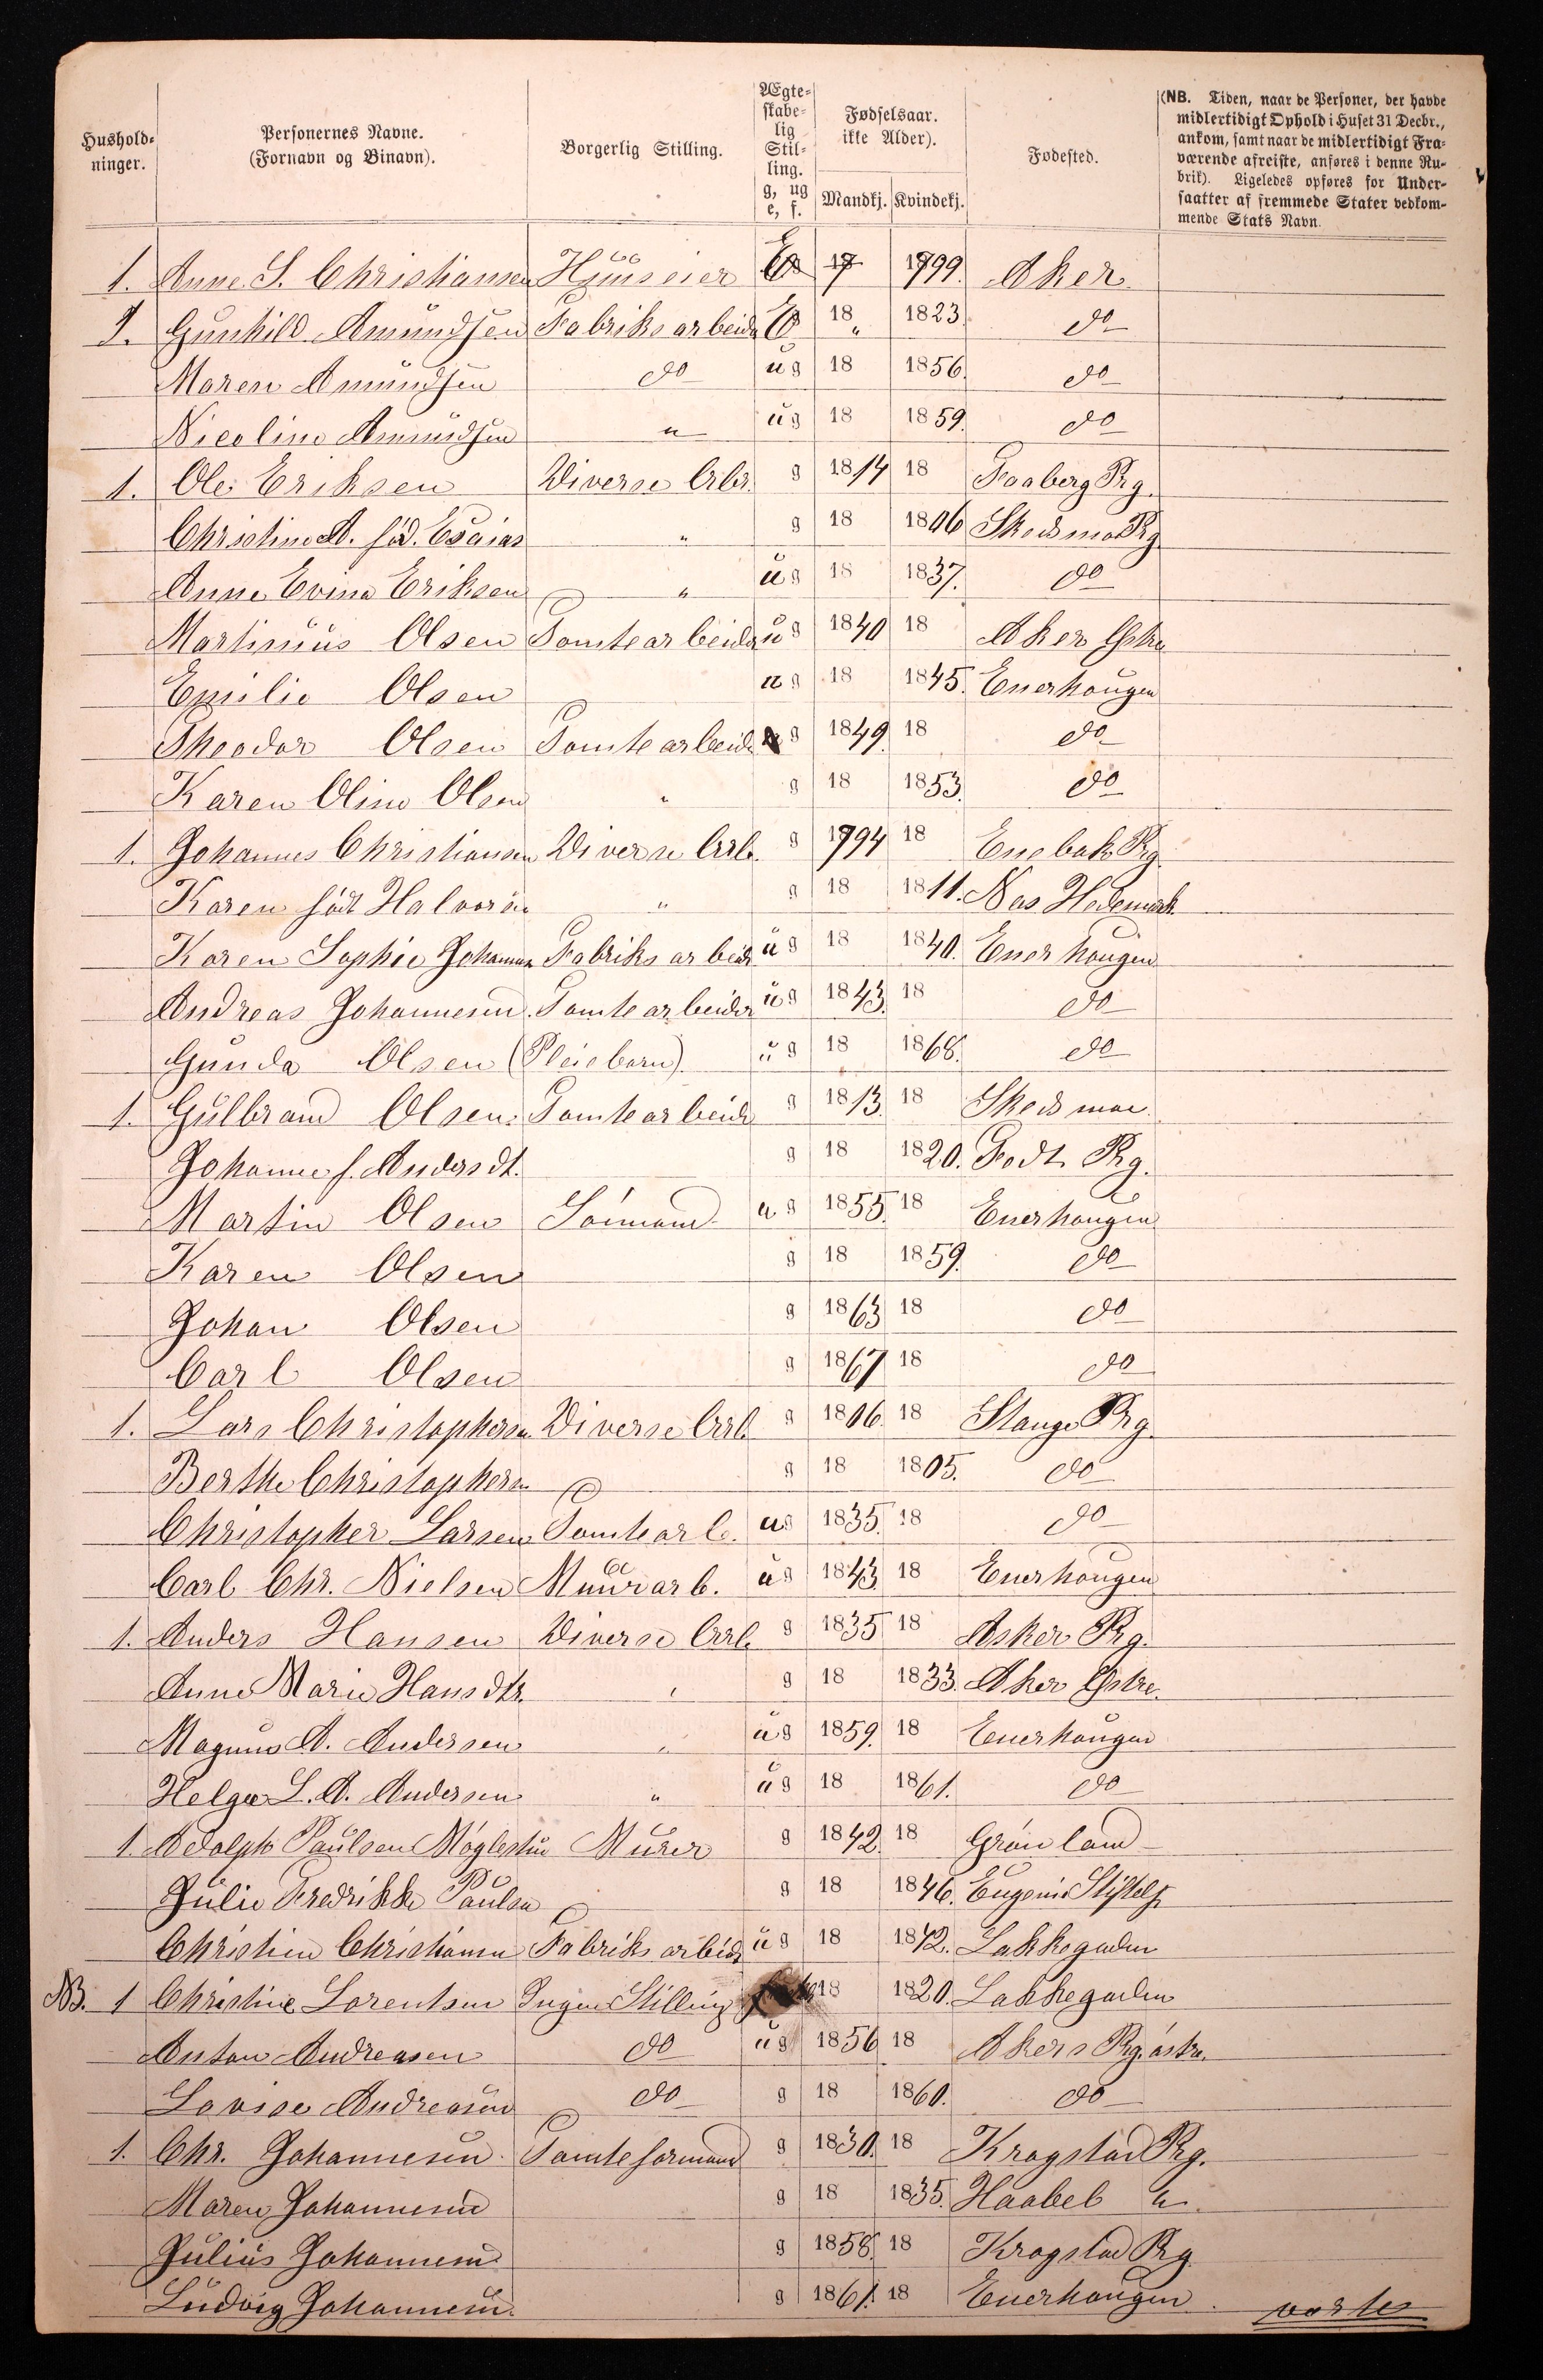 Hushold-
ninger.
Personernes Navne.
(Fornavn og Binavn).
Borgerlig Stilling.
Ægte-
skabe-
lig
Stil-
ling.
g, ug
e, f.
Fødselsaar.
ikke Alder).
Mandkj. Kvindekj.
Fødested.
(NB. Tiden, naar de Personer, der havde
midlertidigt Ophold i Huset 31 Decbr.,
ankom, samt naar de midlertidigt Fra-
værende afreiste, anføres i denne Ru-
brik). Ligeledes opføres for Under-
saatter af fremmede Stater vedkom-
mende Stats Navn.
1. Anne S. Christiansen Huuseier E 17 1799. Aker.
1. Gunhild Amundsen Fabriksarbeid E 18 " 1823. do
Maren Amundsen do ug 18 1856. do
Nicoline Amundsen " ug 18 1859. do
1. Ole Eriksen Diverse Arbr. g 1814 18 Faaberg Prg.
Christine A. fød. Esaias " g 18 1806 Skedsmo Prg
Anne Evina Eriksen " ug 18 1837. do
Martinius Olsen Tomtearbeider ug 1840 18 Aker Østre
Emilie Olsen ug 18 1845. Enerhougen
Theodor Olsen Tomtearbeid g 1849. 18 do
Karen Oline Olsen " g 18 1853. do
1. Johannes Christiansen Diverse Arb. g 1794 18 Enebak Prg
Karen født Halvorsen " g 18 1811. Nes Hedemark
Karen Sophie Johannsn Fabriksarbeid ug 18 1840. Enerhougen
Andreas Johannesen. Tomtearbeider ug 1843. 18 do
Gunda Olsen (Pleiebarn). ug 18 1868. do
1. Gulbrand Olsen. Tomtearbeid g 1813. 18 Skedsmoe.
Johanne f. Andersdt. g 18 1820. Fedt Prg.
Martin Olsen Sømand ug 1855. 18 Enerhougen
Karen Olsen g 18 1859. do
Johan Olsen g 1863 18 do
Carl Olsen g 1867 18 do
1. Lars Christophersn Diverse Arb g 1806. 18 Stange Prg.
Berthe Christophersn g 18 1805. do
Christopher Larsen Tomtearb. ug 1835. 18 do
Carl Chr. Nielsen Muurarb. ug 1843 18 Enerhougen
1. Anders Hansen Diverse Arb g 1835 18 Asker Prg.
Anne Marie Hansdtr. " g 18 1833. Aker Østre.
Magnus A. Andersen " ug 1859. 18 Enerhougen
Helga L. A. Andersen " ug 18 1861. do
1. Adolph Paulsen Møglestue Murer g 1842. 18 Grønland
Julie Fredrikke Paulsn g 18 1846. Eugenies Stiftelse
Christine Christiansn Fabriksarbeid ug 18 1842. Lakkegaden
NB. 1 Christine Lorentsen Ingen Stilling 18 1820. Lakkegaden
Anton Andreasen do ug 1856 18 Akers Prg. østre.
Lovise Andreasen do g 18 1860. do
1. Chr. Johannesen. Tomteformand g 1830. 18 Kragstad Prg.
Maren Johannesen g 18 1835. Haabel "
Julius Johannesen g 1858. 18 Kragstad Prg
Ludvig Johannesen. g 1861. 18 Enerhougen